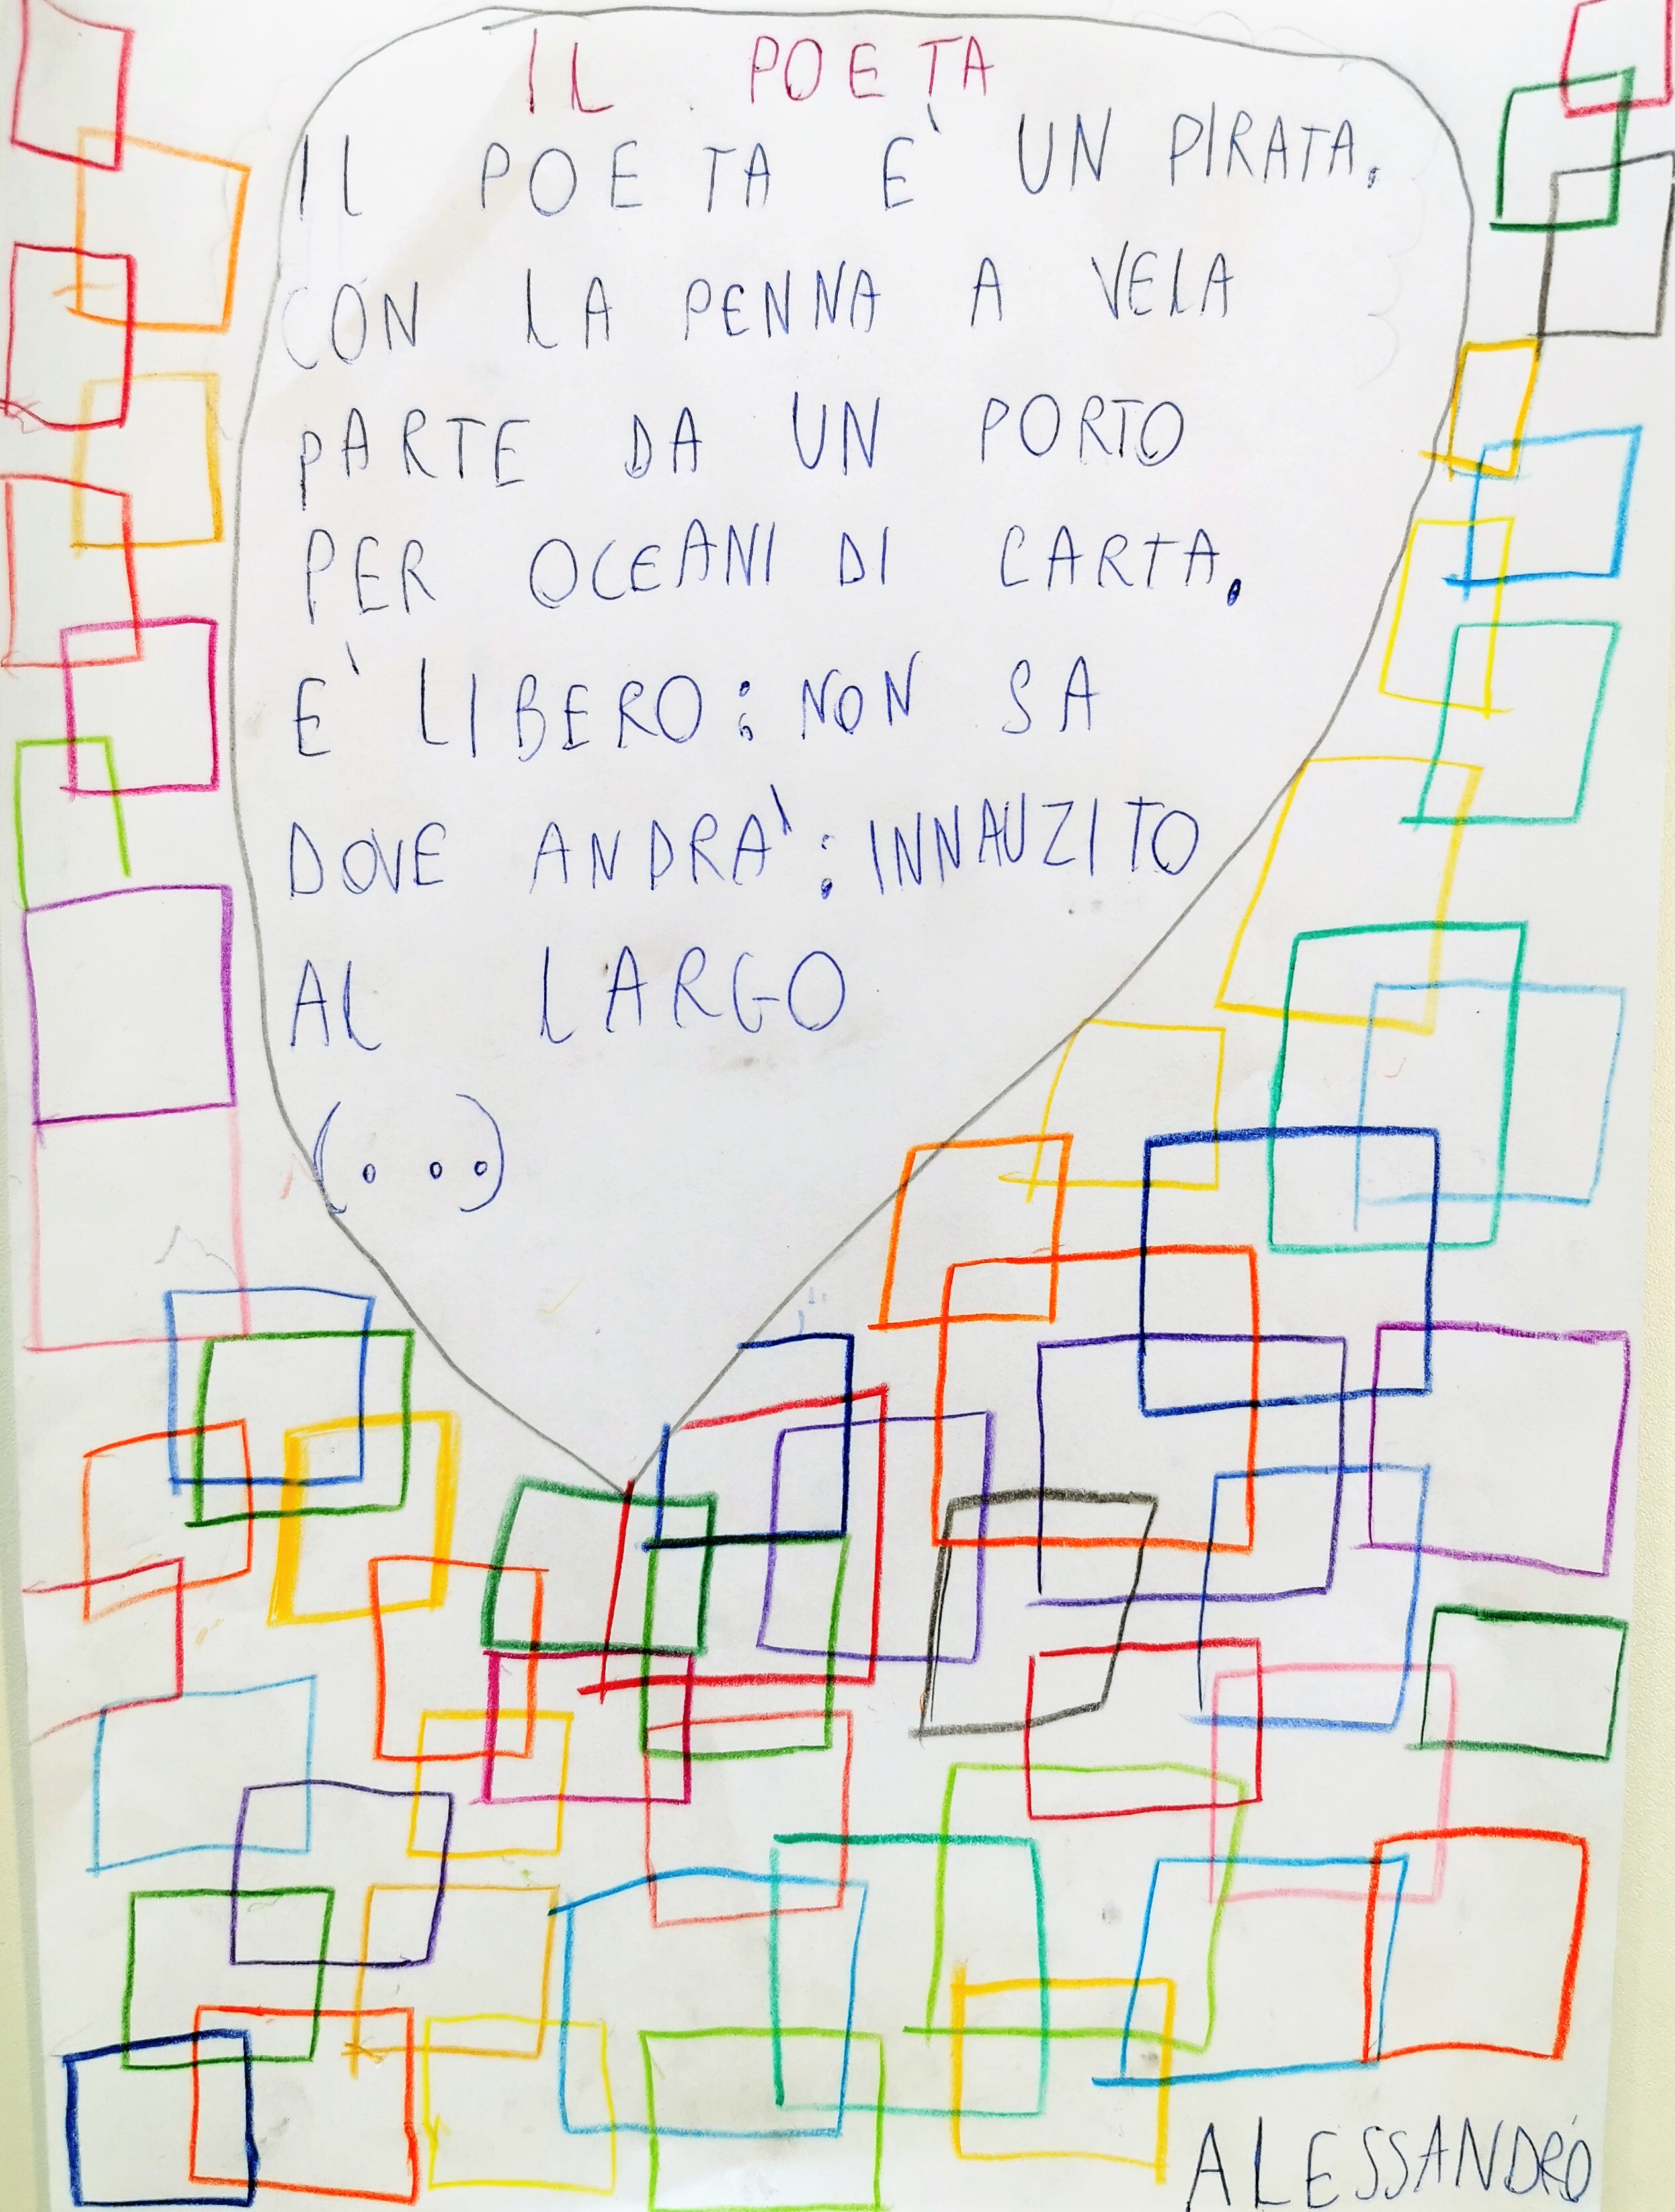 IL POETA
IL POETA E' UN PIRATA.
CON LA PENNA A VELA
PARTE DA UN PORTO
PER OCEANI DI CARTA.
E' LIBERO: NON SA
DOVE ANDRA': INNAUZITO
AL LARGO
(...)
ALESSANDRO